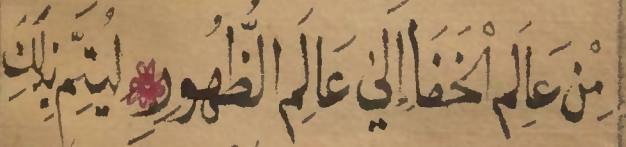 مِنْ عَالَمِ الْخَفَاءِ إِلَىٰ عَالَمِ الظُّهُورِ لِيُتَمِّمَ بِذٰلِكَ